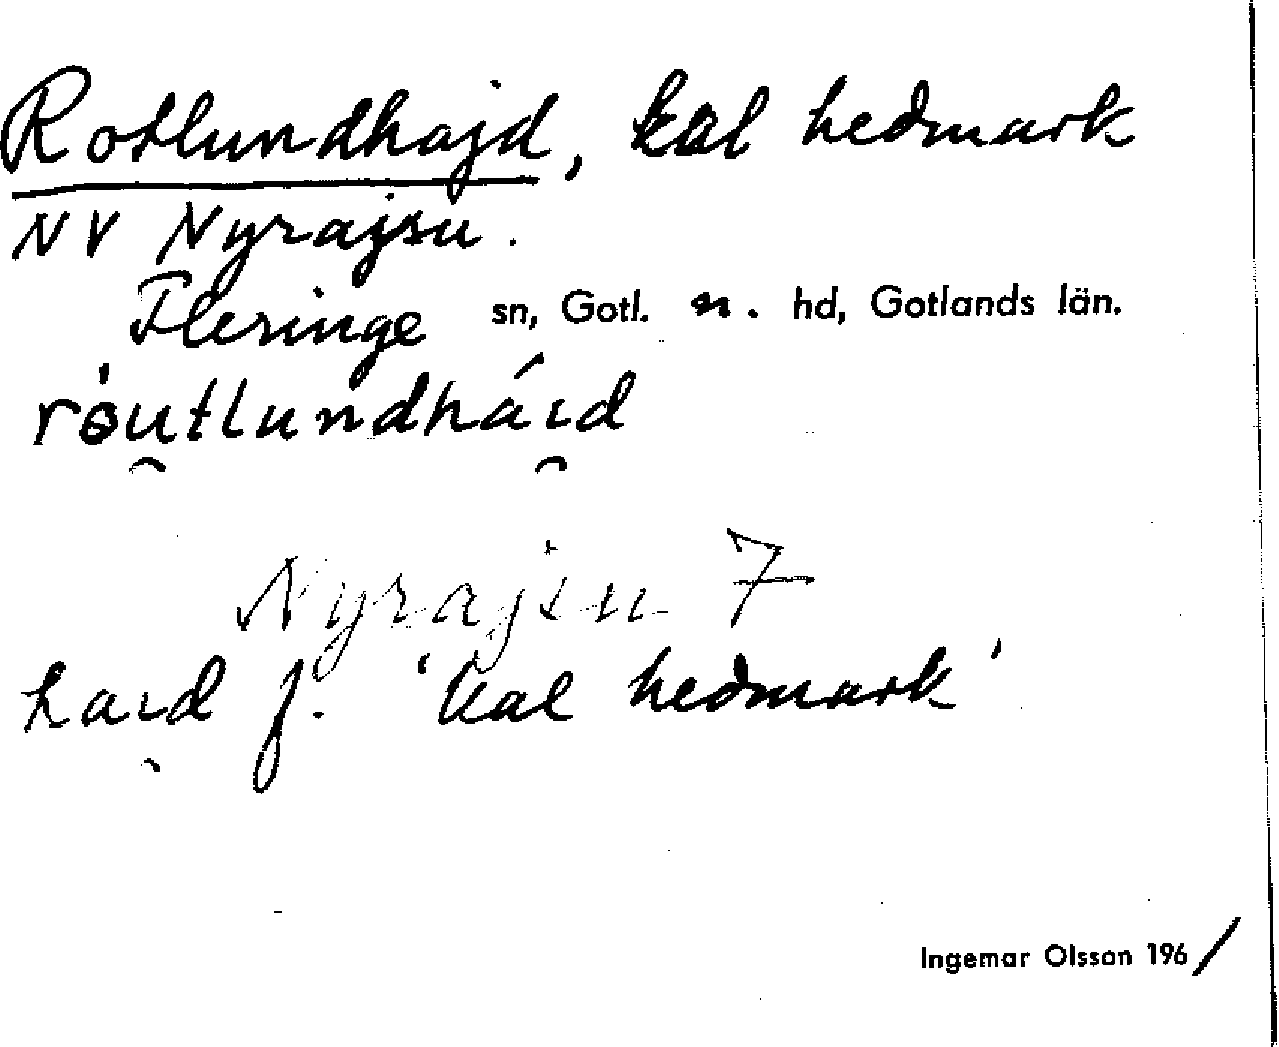 Rotlundhajd, kal hedmark
NV Nyrajsu.
Fleringe sn, Gotl. n. hd, Gotlands län.
ròu̯tlundhái̯d
Nyrajsu 7
hai̯d f. 'kal hedmark'
Ingemar Olsson 196/